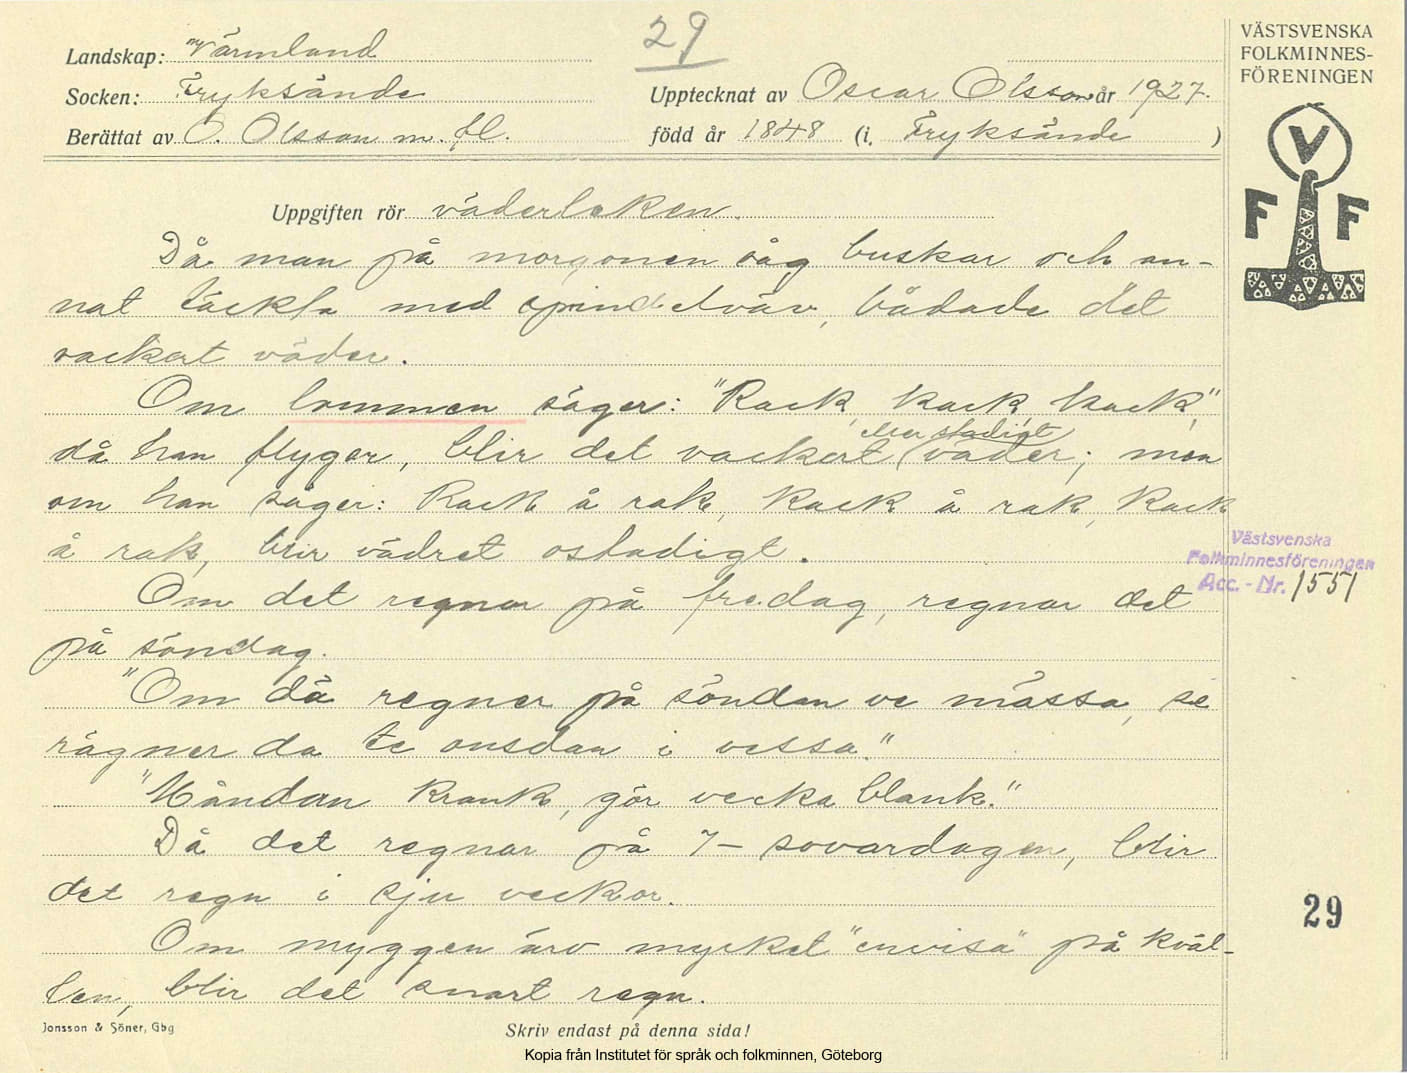 29
VÄSTSVENSKA
FOLKMINNES-
FÖRENINGEN
Landskap: Värmland
Socken: Fryksände
Upptecknat av Oscar Olsson år 1927.
Berättat av O. Olsson m. fl.
född år 1848 (i. Fryksände )
V
F F
Uppgiften rör väderleken.
Då man på morgonen såg buskar och an-
nat täckta med spindelväv, bådade det
vackert väder.
Om lommen säger: "Kack, kack, kack",
eller stadigt
då han flyger, blir det vackert (väder; men
om han säger: Kack å rak, kack å rak, kack
å rak, blir vädret ostadigt.
Om det regnar på fredag, regnar det
på söndag.
"Om dä regner på söndan ve mässa, sè
rägner da te onsdan i vessa."
"Måndan krank, gör vecka blank."
Då det regnar på 7-sovardagen, blir
det regn i sju veckor.
Om myggen äro mycket "envisa" på kväl-
len, blir det snart regn.
Västsvenska
Folkminnesföreningen
Acc. - Nr. 1551
29
Jonsson & Söner, Gbg
Skriv endast på denna sida!
Kopia från Institutet för språk och folkminnen, Göteborg